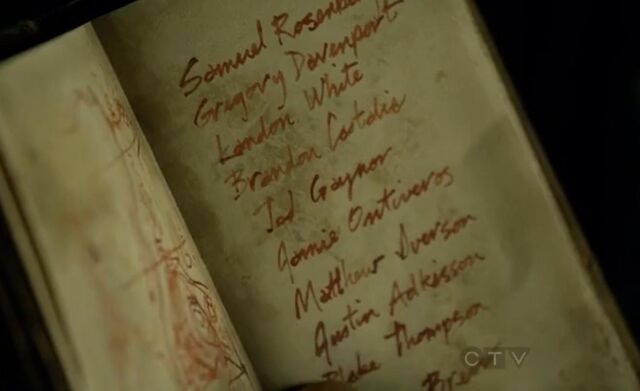 Samuel
Gregory Davenport
Landon White
Brandon Castalis
Jad Gaynor
Jamie Ontiveros
Matthew Iverson
Austin Adkisson
Blake Thompson
CTV